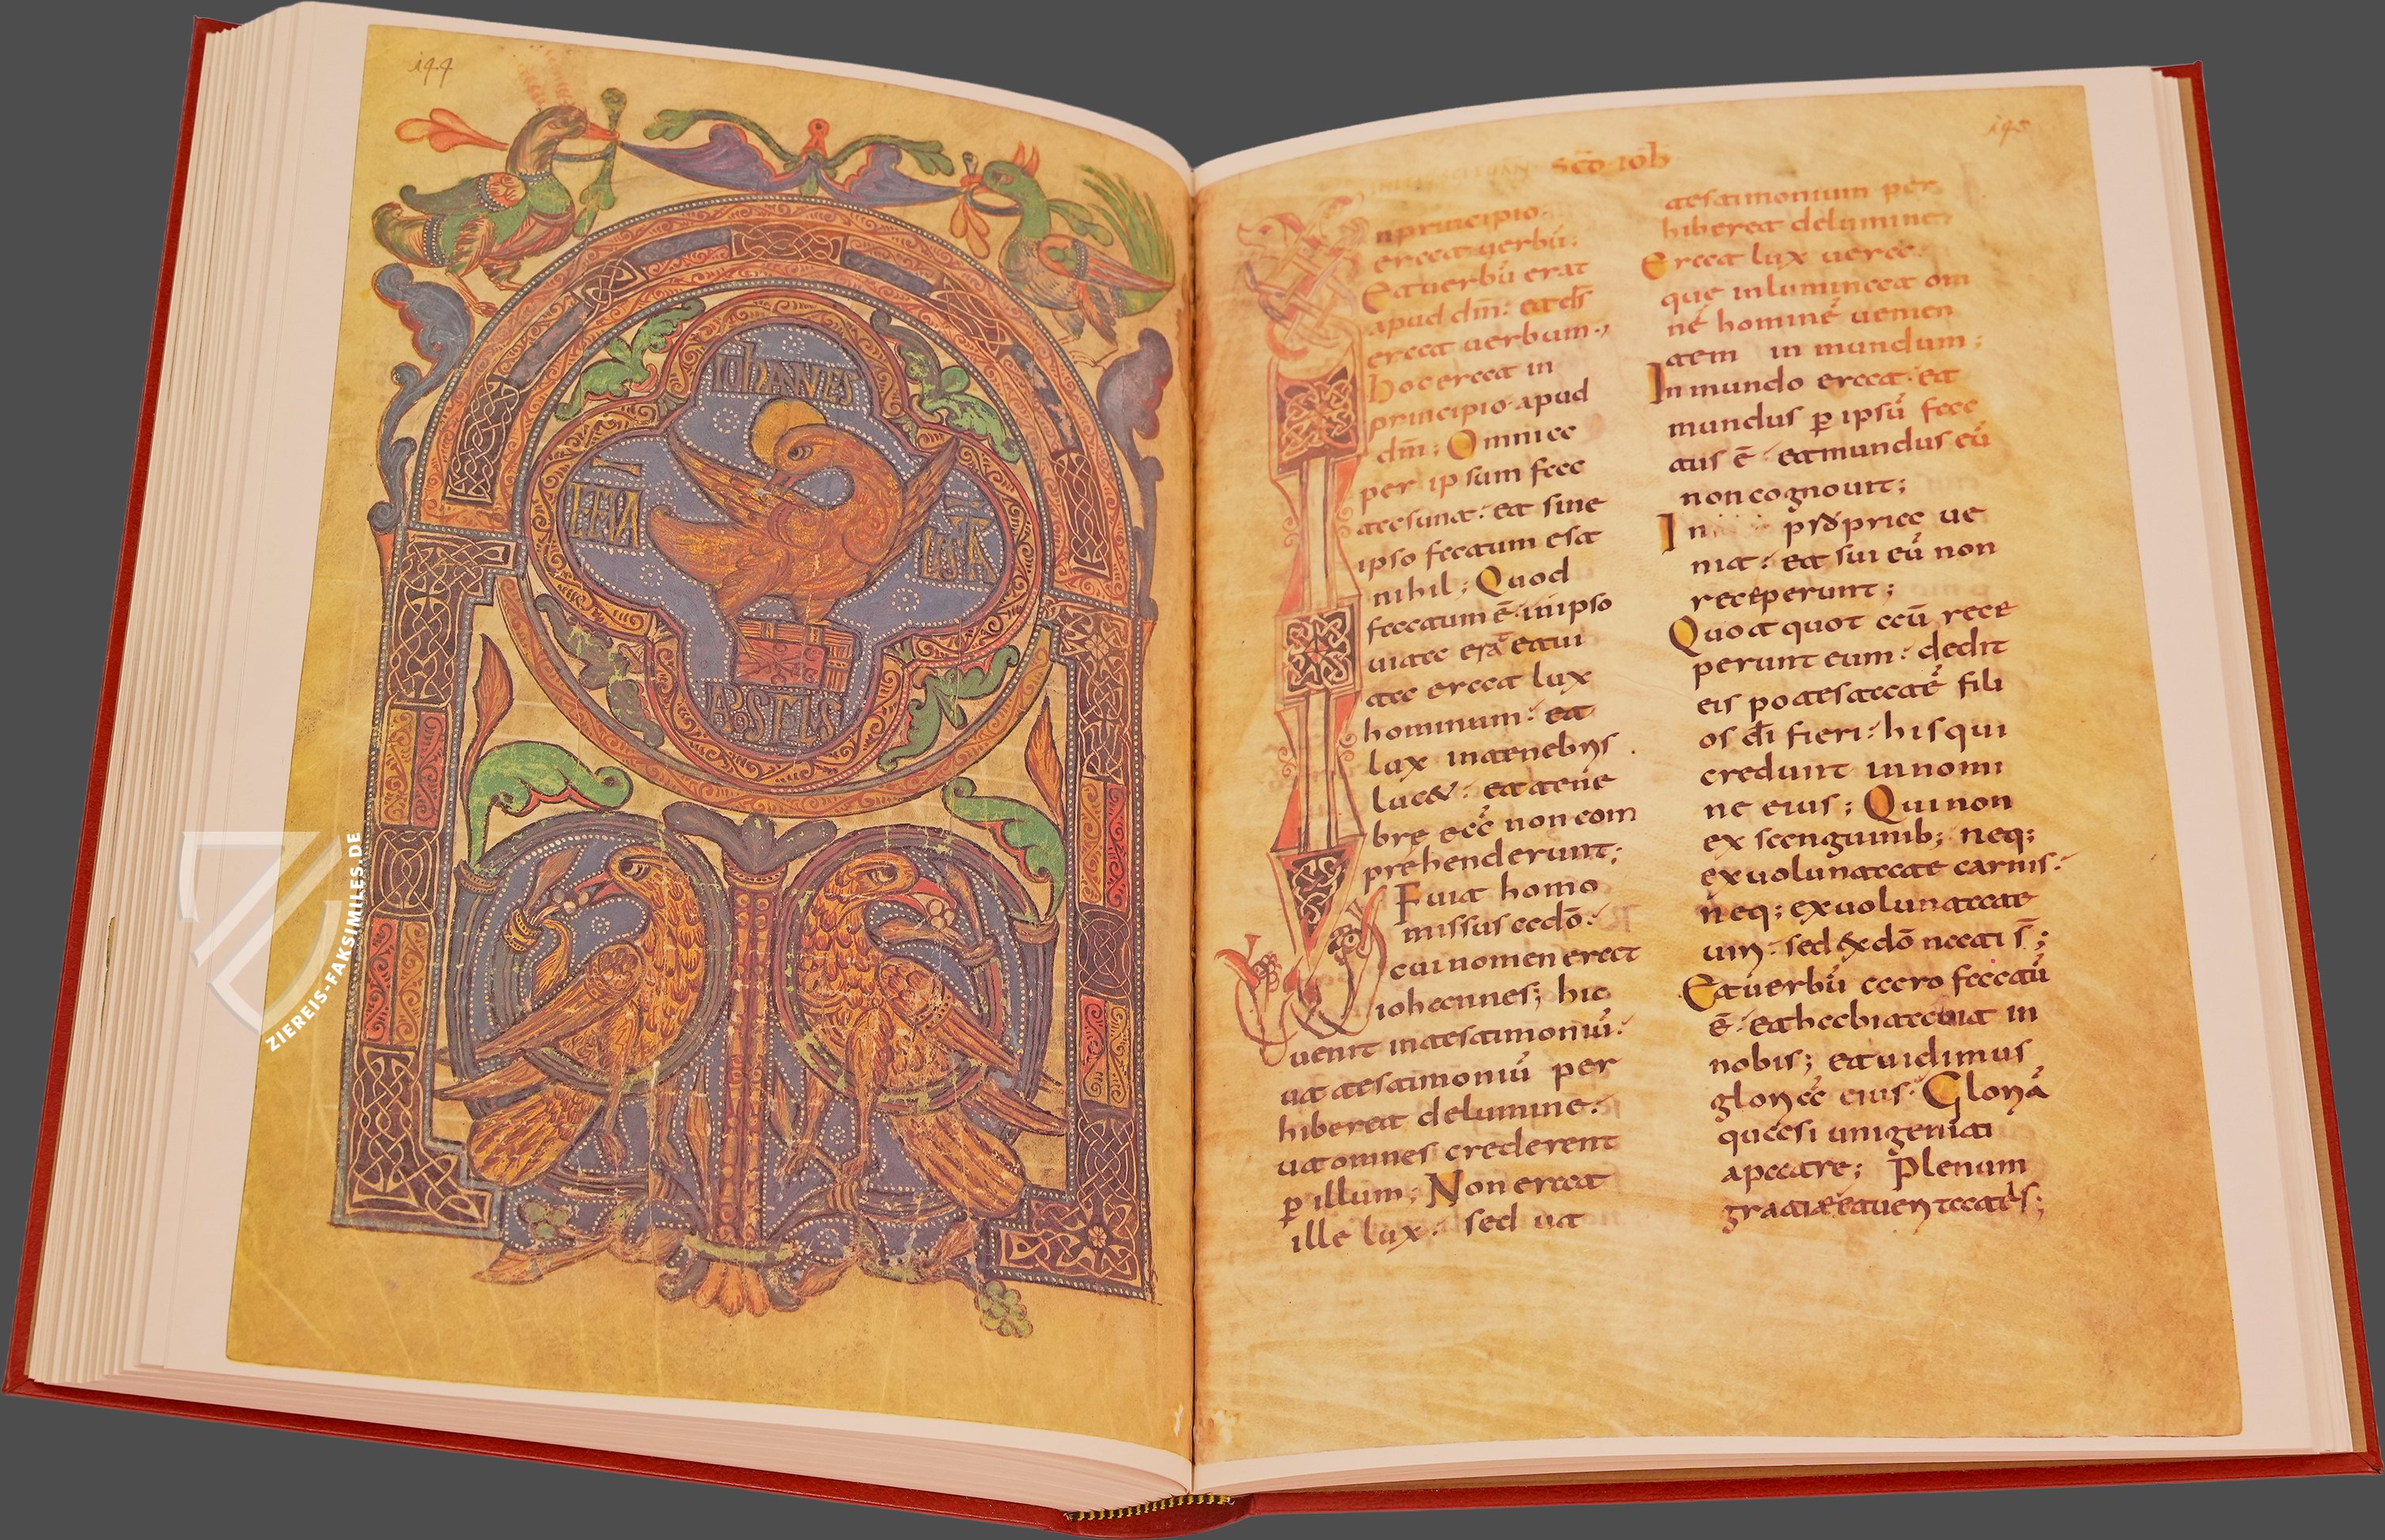 144
IOHANES
APOSTLS
145
SCD IOH
nprincipio·
erat uerbū:
Et uerbū erat
apud dm̄: et ds̄
erat uerbum·,
hoc erat in
principio apud
dm̄: Omnia
per ipsum fac
ta sunt: et sine
ipso factum est
nihil; Quod
factum ē· in ipso
uita erat et ui
ta erat lux
hominum: et
lux in tenebris
lucet: et tene
bre eā non com
prehenderunt;
Fuit homo
missus a dō:
cui nomen erat
iohannes; hic
uenit in testimoniū:
ut testimoniū per
hiberet de lumine:
ut omnes crederent
p illum; Non erat
ille lux: sed ut
testimonium per
hiberet de lumine:
Erat lux uera·
quę inluminat om
nē hominē uenien
tem in mundum;
In mundo erat· et
mundus p ipsū fac
tus ē· et mundus eū
non cognouit;
In propria ue
nit: et sui eū non
receperunt;
Quot quot aū rece
perunt eum: dedit
eis potestatē fili
os dī fieri: his qui
credunt in nomi
ne eius; Qui non
ex sanguinib; neq;
ex uoluntate carnis:
neq; ex uoluntate
uiri: sed ex dō nati s̄;
Et uerbū caro factū
ē: et habitauit in
nobis; et uidimus
gloriā eius· Gloriā
quasi unigeniti
a patre; Plenum
gratiae et ueritatis;
ZIEREIS-FAKSIMILES.DE